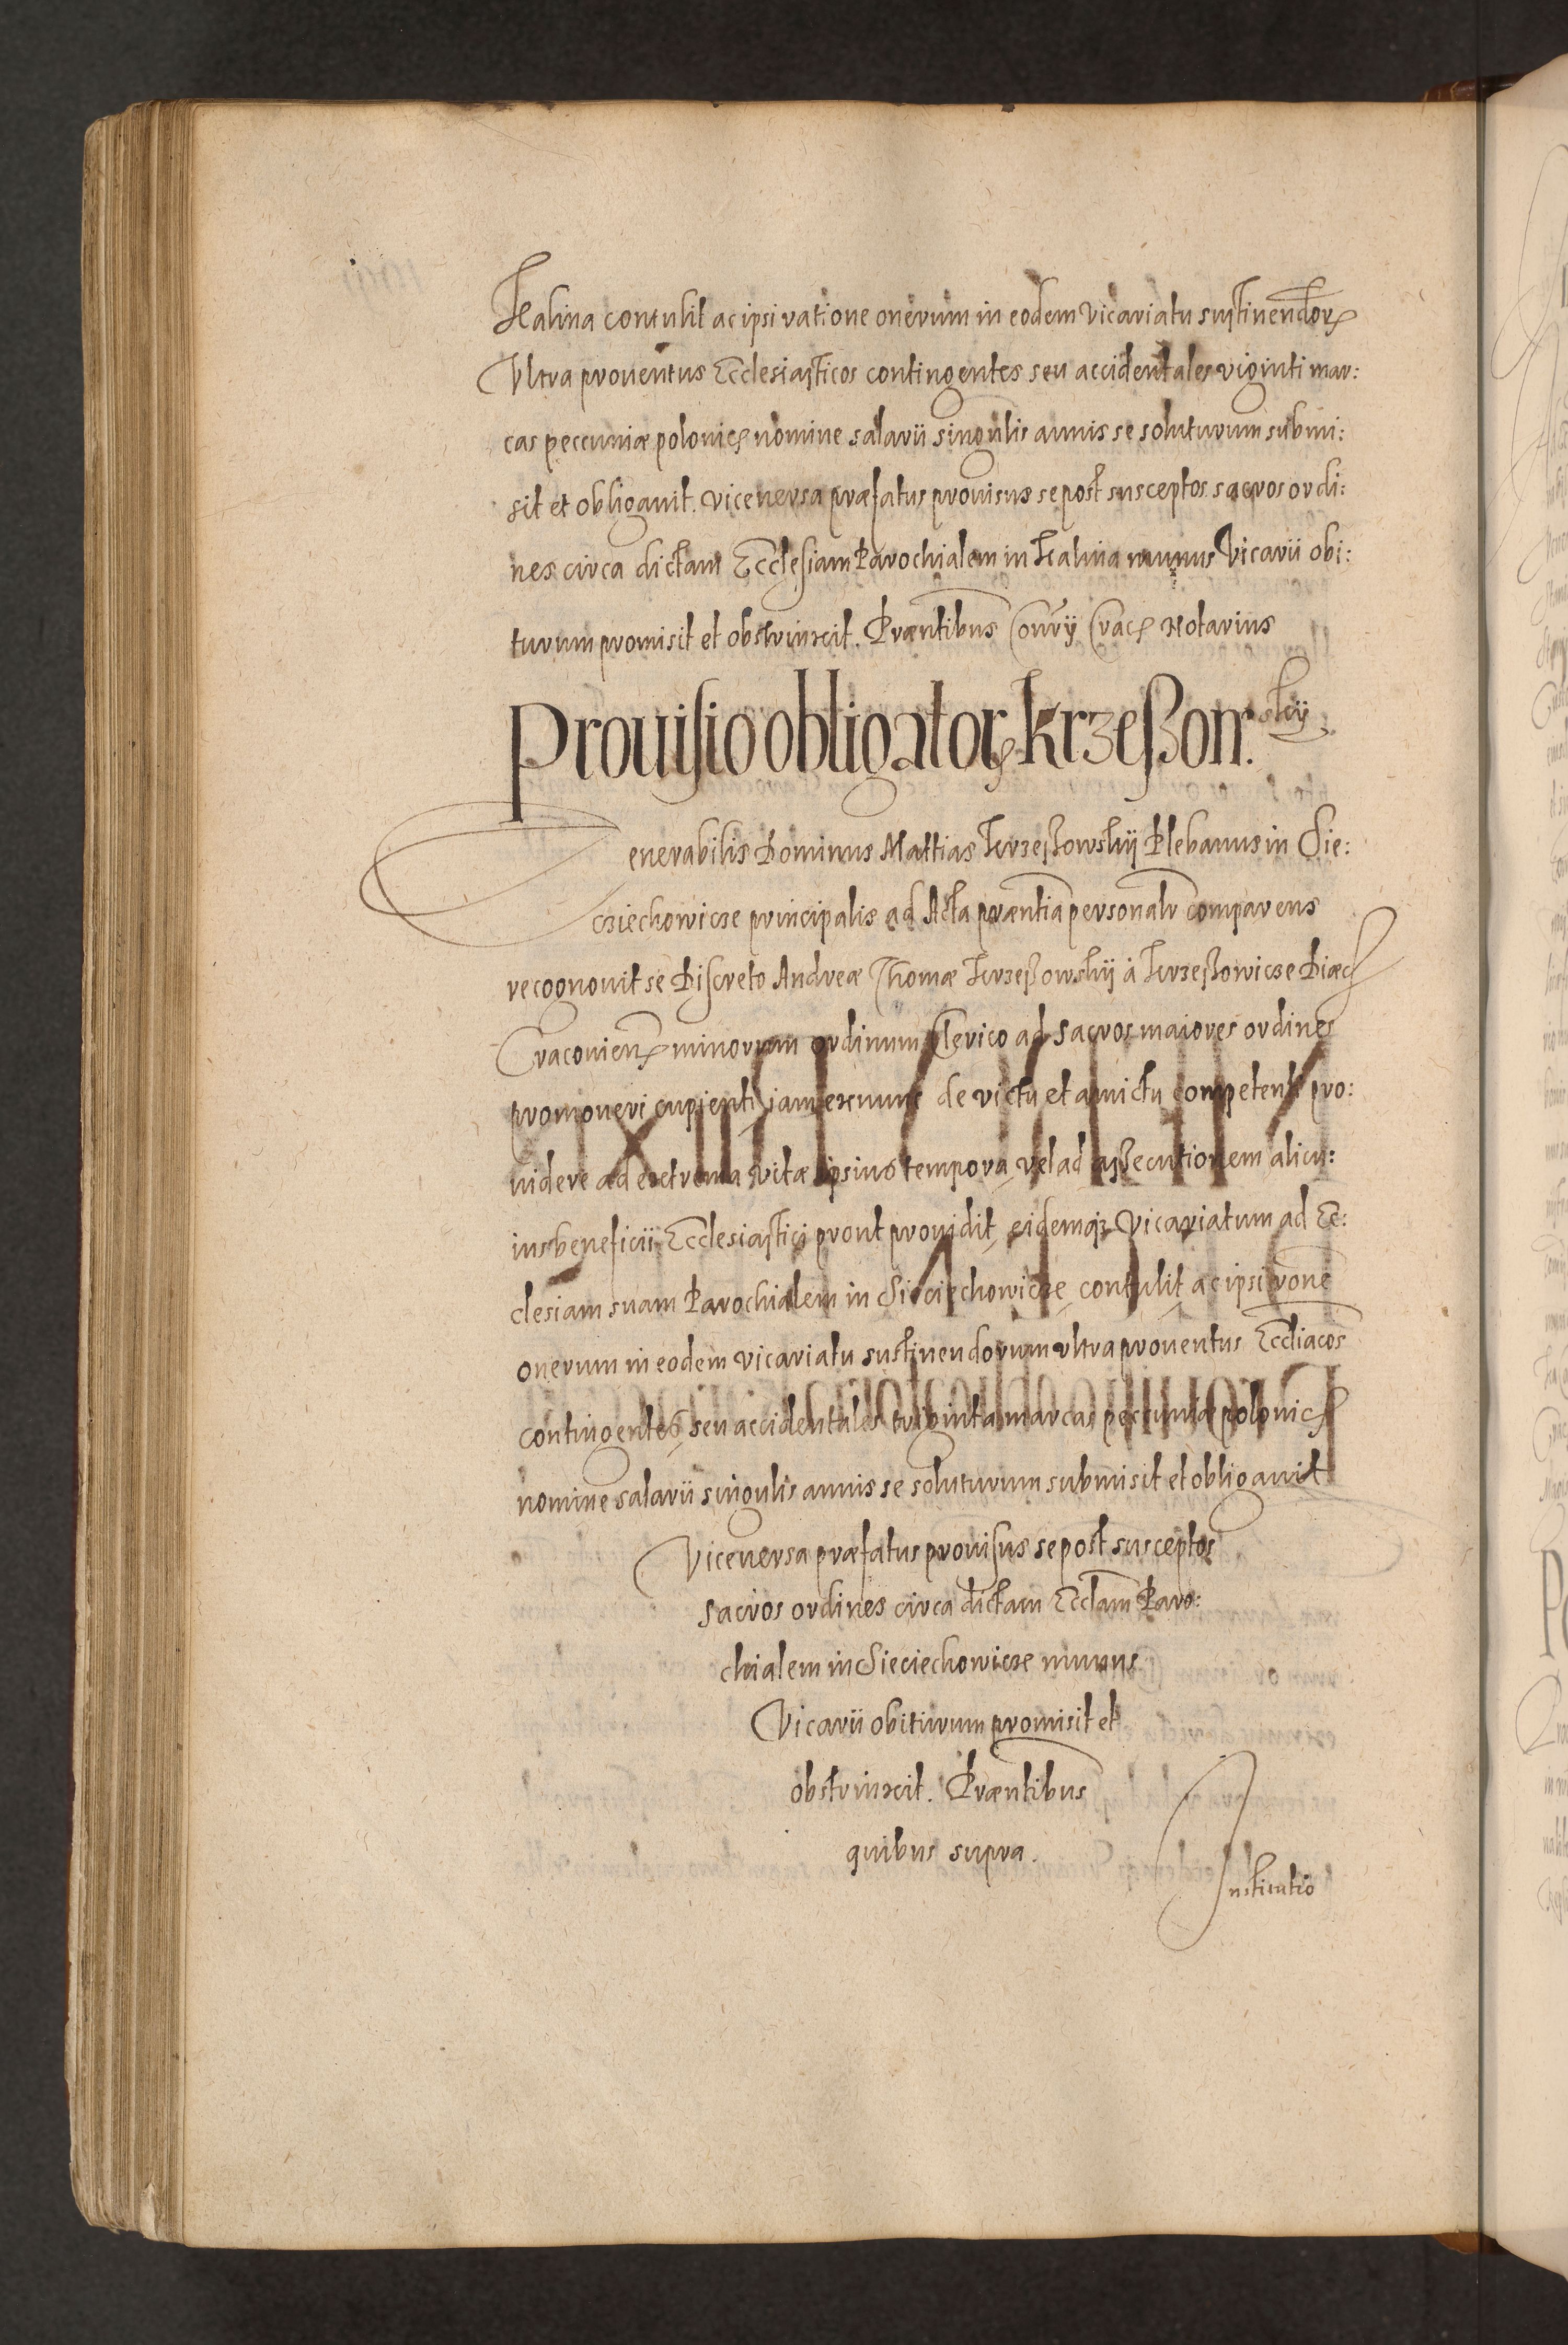 Kalina contulit ac ipsi ratione onerum in eodem Vicariatu sustinendor
Vltra prouentus Ecclesiasticos contingentes seu accidentales viginti mar:
cas peccuniæ polonic nomine salarii singulis annis se soluturum submi:
sit et obligauit. viceuersa præfatus prouisus se post susceptos sacros ordi:
nes circa dictam Ecclesiam Parochialem in Kalina munus Vicarii obi:
turum promisit et obstrinxit. Præntibus Conrij Crac Notarius
Prouisio obligator Krzeßow:skij
Venerabilis Dominus Mattias Krzeßowskij Plebanus in Sie:
cziechowicze principalis ad Acta præntia personalr comparens
recognouit se Discreto Andreæ Thomæ Krzeßowskij à Krzeßowicze Diæc
Cracouien minorum ordinum Clerico ad sacros maiores ordines
promoueri cupienti, iam ex nunc de victu et amictu competenti pro:
uidere ad extrema vitæ ipsius tempora, vel ad assecutionem alicu:
ius beneficii Ecclesiastici prout prouidit, eidemq3 Vicariatum ad Ec:
clesiam suam Parochialem in Sieciechowicze contulit, ac ipsi rone
onerum in eodem vicariatu sustinendorum vltra prouentus Ecclıacos
contingentes, seu accidentales triginta marcas peccuniæ polonic
nomine salarii singulis annis se soluturum submisit et obligauit
Viceuersa præfatus prouisus se post susceptos
sacros ordines circa dictam Ecclam Paro:
chialem in Sieciechowicze munus
Vicarii obiturum promisit et
obstrinxit. Præntibus
quibus supra.
Institutio